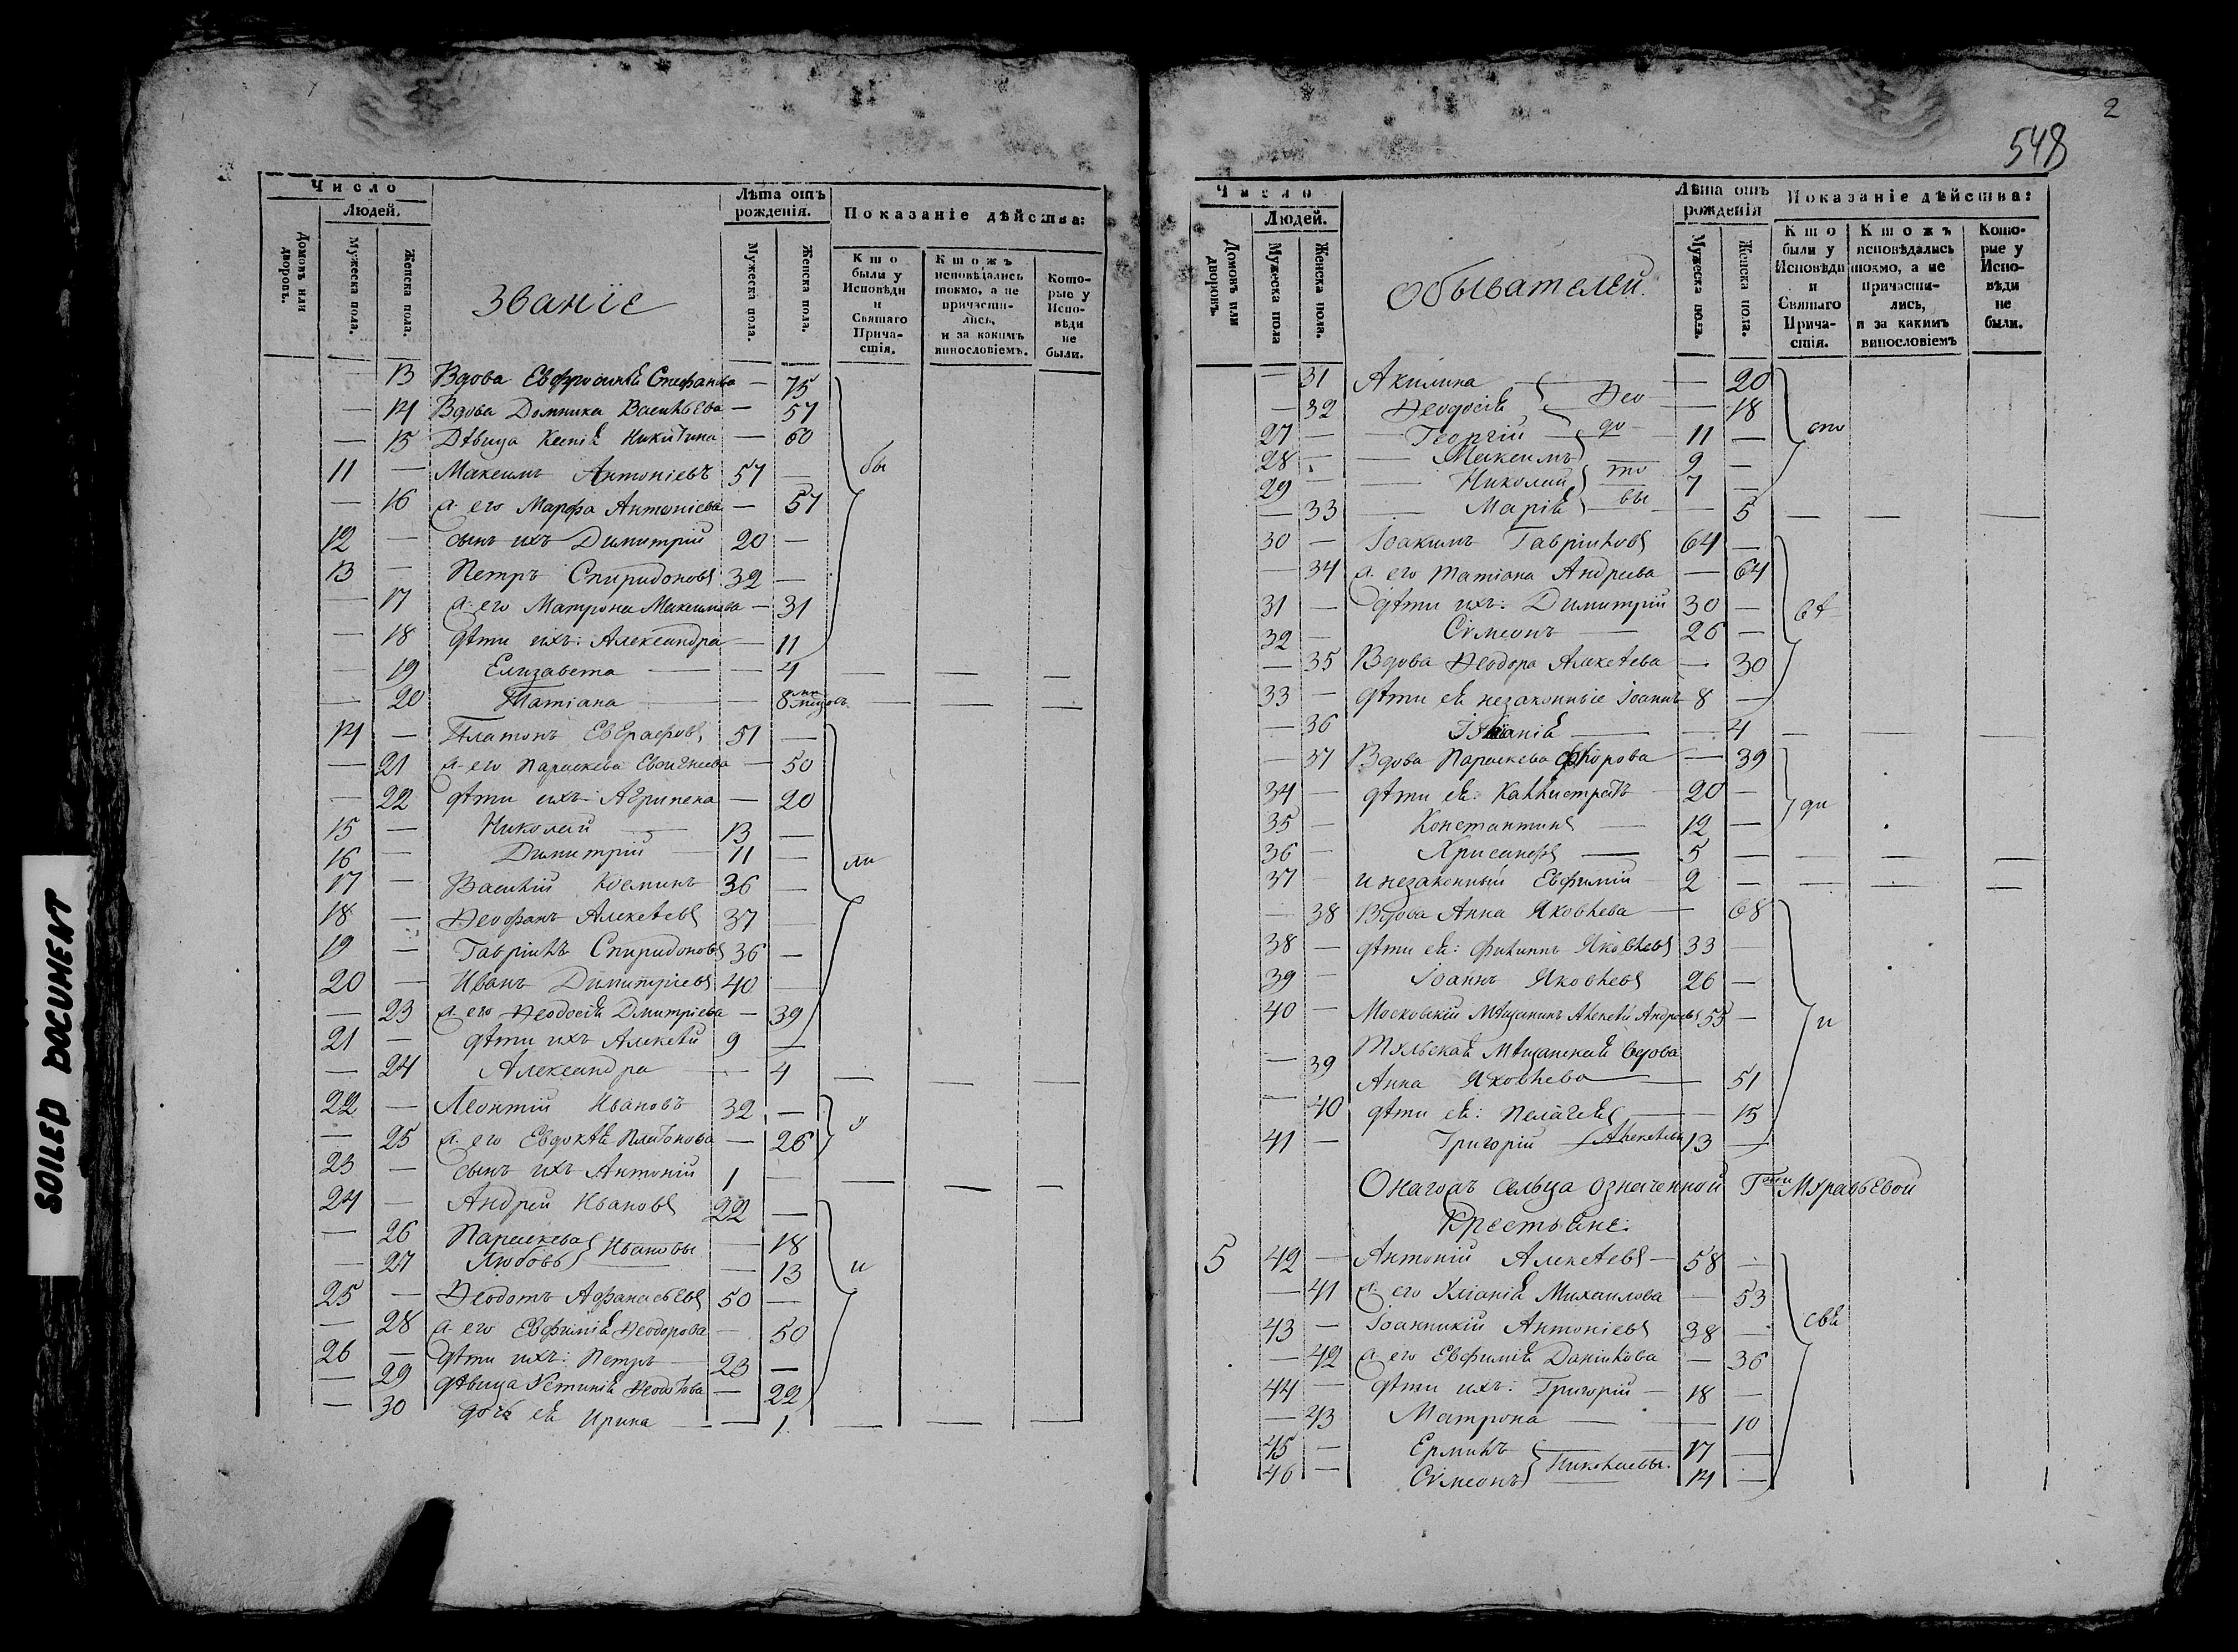 SOILED DOCUMENT
Число
Людей.
Домовъ или дворовъ.
Мужеска пола.
Женска пола.
Званїе
Лѣта отъ рожденія.
Мужеска пола.
Женска пола.
Показаніе дѣйства:
Кто были у Исповѣди и Святаго Причастія.
Ктожъ исповѣдались токмо, а не причастились, и за какимъ винословіемъ.
Которые у Исповѣди не были.
— 13 Вдова Евфросинія Стефанова — 75
— 14 Вдова Домника Васильева — 57
— 15 Дѣвица Ксенія Никитина — 60
11 — Максимъ Антоніевъ 57 — бы
— 16 ж. его Марфа Антоніева — 57
12 — сынъ ихъ Димитрій 20 —
13 — Петръ Спиридоновъ 32 —
— 17 ж. его Матрона Максимова — 31
— 18 дѣти ихъ: Александра — 11
— 19 Елизавета — 4 — — —
— 20 Татіана — 8 — — —
14 — Платонъ Евграфовъ 51 —
— 21 ж. его Параскева — 50
— 22 дѣти ихъ: Агрипена — 20
15 — Николай 13 —
16 — Димитрій 11 — ли
17 — Василій Косминъ 36 —
18 — Ѳеофанъ Алексѣевъ 37 —
19 — Гавріилъ Спиридоновъ 36 —
20 — Иванъ Димитріевъ 40 —
— 23 ж. его Ѳеодосія Дмитріева — 39
21 — дѣти ихъ Алексѣй 9 —
— 24 Александра — 4 — — —
22 — Леонтій Ивановъ 32 — у
— 25 ж. его Евдокѣя Платонова — 26
23 — сынъ ихъ Антоній 1 — — — —
24 — Андрей Ивановъ 22 —
— 26 Параскева Ивановы — 18
— 27 Любовь — 13 и
25 — Ѳеодотъ Афанасьевъ 50 —
— 28 ж. его Евфимія Ѳеодорова — 50
26 — дѣти ихъ: Петръ 23 —
— 29 дѣвица Устинія Ѳеодотова — 22
— 30 дочь ея Ирина — 1 — — —
2
548
Число
Людей.
Домовъ или дворовъ.
Мужеска пола
Женска пола.
Обывателей.
Лѣта отъ рожденія
Мужеска пола.
Женска пола.
Показаніе дѣйства:
Кто были у Исповѣди и Святаго Причастія.
Ктожъ исповѣдались токмо, а не причастились, и за какимъ винословіемъ
Которые у Исповѣди не были.
— 31 Акилина Ѳео — 20
— 32 Ѳеодосія — 18
27 — Георгій до 11 — сто
28 — Максимъ 9 —
29 — Николай то 7 —
— 33 Марія вы — 5 — — —
30 — Іоакимъ Гавриловъ 64 —
— 34 ж. его Татіана Андреева — 64
31 — дѣти ихъ: Димитрій 30 — вѣ
32 — Сѵмеонъ 26 —
— 35 Вдова Ѳеодора Алексѣева — 30
33 — дѣти ея незаконные Іоаннъ 8 —
— 36 — 4 — — —
— 37 Вдова Параскева — 39
34 — дѣти ея: Каллистратъ 20 —
35 — Константинъ 12 — ди
36 — Хрисанфъ 5 — — — —
37 — и незаконный Евфимій 2 — — — —
— 38 Вдова Анна Яковлева — 68
38 — дѣти ея: Филиппъ Яковлевъ 33 —
39 — Іоаннъ Яковлевъ 26 —
40 — Московскій Мѣщанинъ Алексѣй Андреевъ 55 — и
— 39 Тульская Мѣщанская вдова
Анна Яковлева — 51
— 40 дѣти ея: Пелагея — 15
41 — Григорій Алексѣевы 13 —
Онагожъ сельца означенной Гжи Муравьевой
Крестьяне:
5 42 — Антоній Алексѣевъ 58 —
— 41 ж. его Уліанія Михаилова — 53
43 — Іоанникій Антоніевъ 38 — свя
— 42 ж. его Евфимія Даніилова — 36
44 — дѣти ихъ: Григорій 18 —
— 43 Матрона — 10
45 — Ермилъ Николаевы. 17 —
46 — Сѵмеонъ 14 —